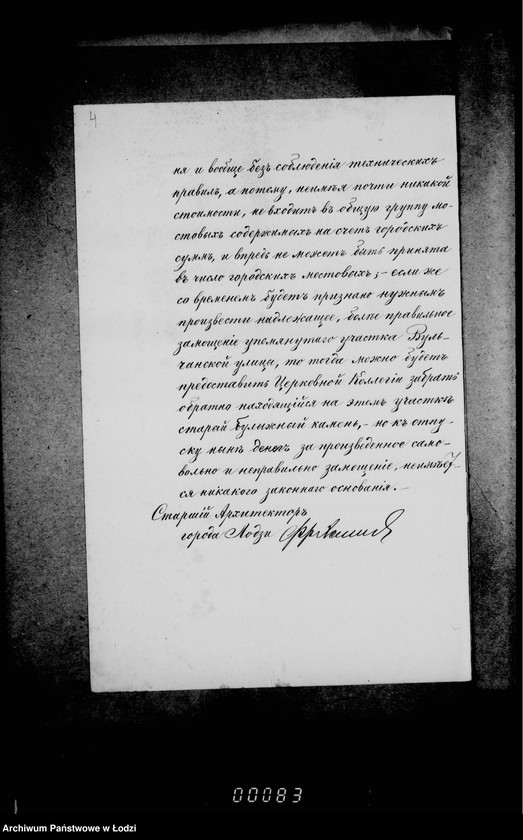 4
ня и вообще безъ соблюденія техническихъ
правилъ, а потому, неимѣя почти никакой
стоимости, не входитъ въ общую группу мо-
стовыхъ содержимыхъ на счетъ городскихъ
суммъ, и впредь не можетъ быть принята
въ число городскихъ мостовыхъ; – если же
со временемъ будетъ признано нужнымъ
произвести надлежащее, болѣе правильное
замощеніе упомянутаго участка Вуль-
чанской улицы, то тогда можно будетъ
предоставить Церковной Коллегіи забрать
обратно находящійся на этомъ участкѣ
старый булыжный камень, – но къ отпу-
ску нынѣ денегъ за произведенное само-
вольно и неправильно замощеніе, неимѣет-
ся никакого законнаго основанія. –
Старшій Архитекторъ
города Лодзи
00083
Archiwum Państwowe w Łodzi